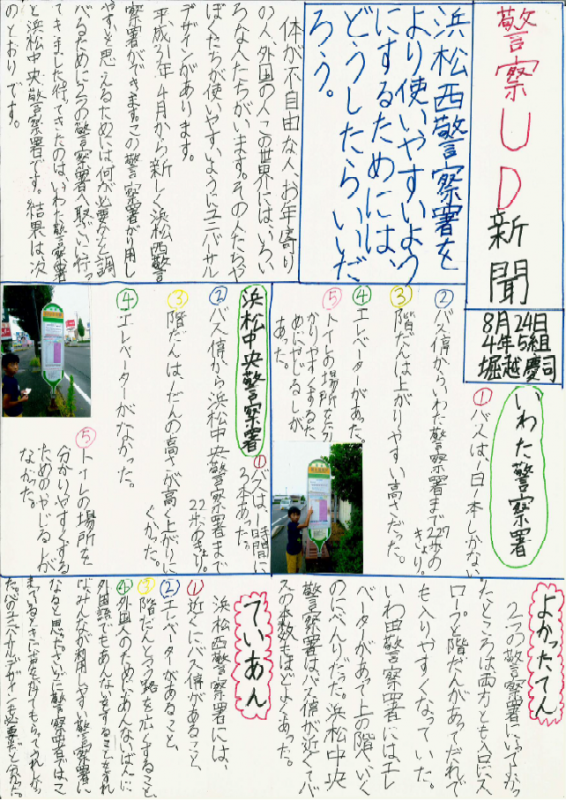 警察UD新聞
8月24日
4年5組
堀越慶司
浜松西警察署を
より使いやすいよう
にするためには、
どうしたらいいだ
ろう。
体が不自由な人、お年寄り
の人、外国の人この世界には、いろい
ろな人たちがいます。その人たちや
ぼくたちが使いやすいようにユニバーサル
デザインがあります。
平成31年4月から新しく浜松西警
察署ができます。この警察署がり用し
やすいと思えるためには何が必要かを調
べるために2つの警察署へ取ざいに行っ
てきました。行ってきたのは、いわた警察署
と浜松中央警察署です。結果は次
のとおりです。
いわた警察署
①バスは一日一本しかない
②バス停から、いわた警察署まで270歩の
きょり。
③階だんは上がりやすい高さだった。
④エレベーターがあった。
⑤トイレの場所を分
かりやすくするた
めにやじるしが
あった。
浜松中央警察署
①バスは、一時間に
3本あった。
②バス停から浜松中央警察署まで
22歩のきょり。
③階だんは一だんの高さが高く上がりに
くかった。
④エレベーターがなかった。
⑤トイレの場所を
分かりやすくする
ためのやじるしが
なかった。
よかったてん
2つの警察署にいってよかっ
たところは両方とも入口にス
ロープと階だんがあってだれで
も入りやすくなっていた。
いわ田警察署にはエレ
ベーターがあって上の階へいく
のにべんりだった。浜松中央
警察署はバス停が近くてバ
スの本数もほどよくあった。
ていあん
浜松西警察署には、
①近くにバス停があること、
②エレベーターがあること、
③階だんとつう路を広くすること、
④外国人のためにあんないばんに
外国語でもあんないをすることをすれ
ばみんなが利用しやすい警察署に
なると思った。さいごに警察署では、こ
まってるときに声をかけてもらってうれしか
った。心のユニバーサルデザインも必要だと分かった。